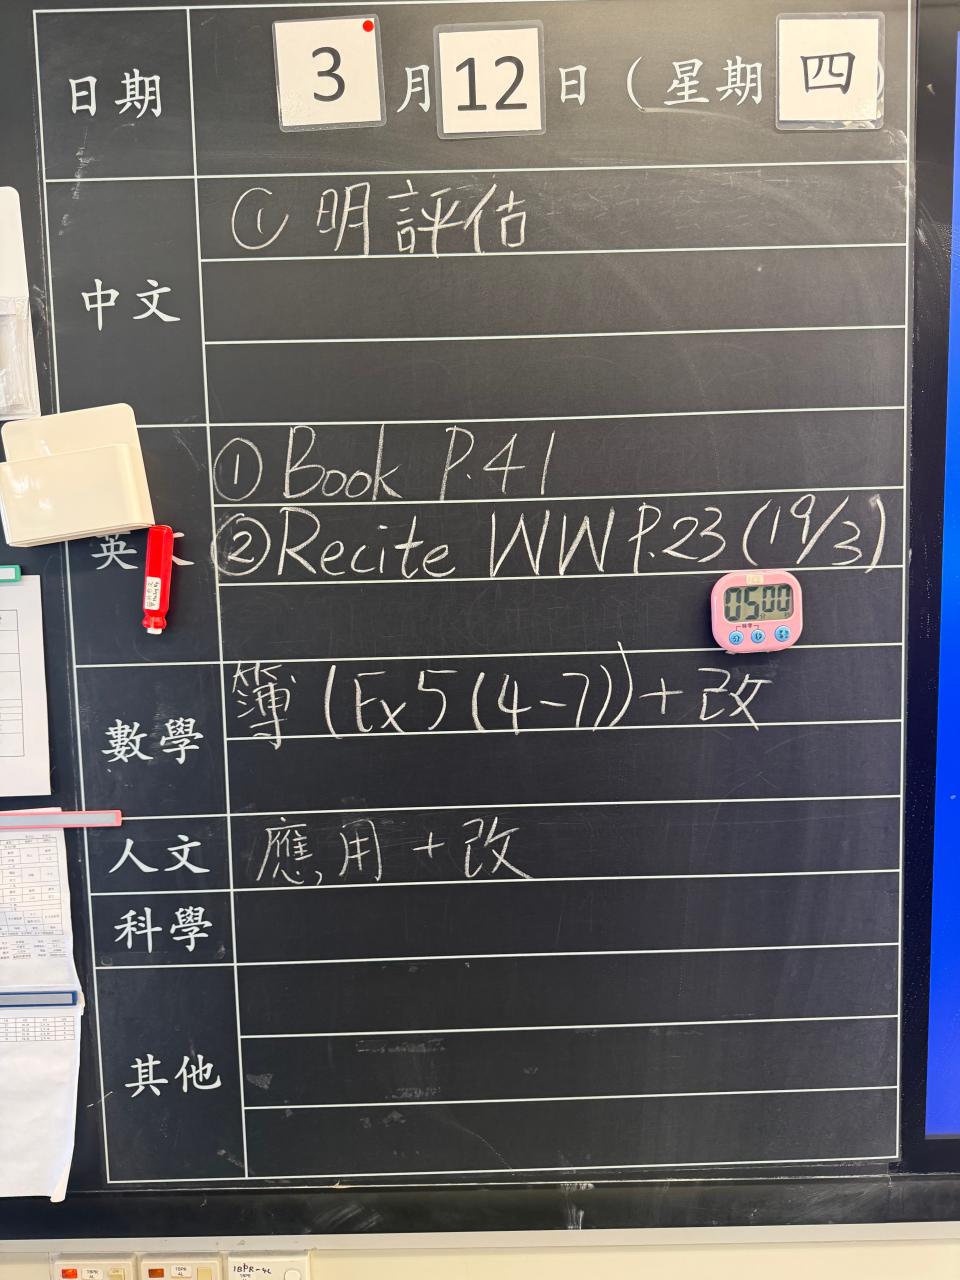 日期 3月12日(星期四)
中文
① 明評估
英
① Book P.41
② Recite WW P.23 (19/3)
05 00
數學
簿 (Ex 5 (4-7)) + 改
人文
應用 + 改
科學
其他
1BPR-4L